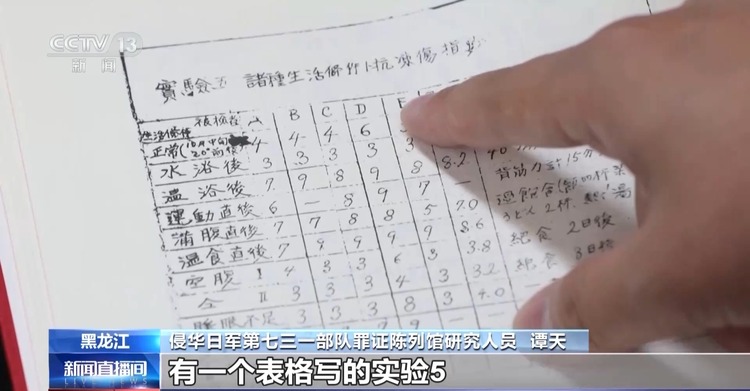 CCTV 13
新闻
實驗五 諸種生活條件下抗凍傷指數
被檢者 A B C D E
生活條件
正常 4 4 4 6
水浴後 3 3 3 3 3
温浴後 7 9 8 9 8 8.2
運動直後 6 — 8 9 7 —
滿腹直後 7 7 8 8 5 7.0
温食直後 7 9 9 9 9 8.6
空腹 I 4 3 3 6 3 3.8 絕食 2日後
仝 II 3 3 3 4 3 3.2 絕食 3日後
睡眠不足 3 3 3 8 3 4.0
黑龙江
侵华日军第七三一部队罪证陈列馆研究人员 谭天
新闻直播间
LIVE NEWS
有一个表格写的实验5